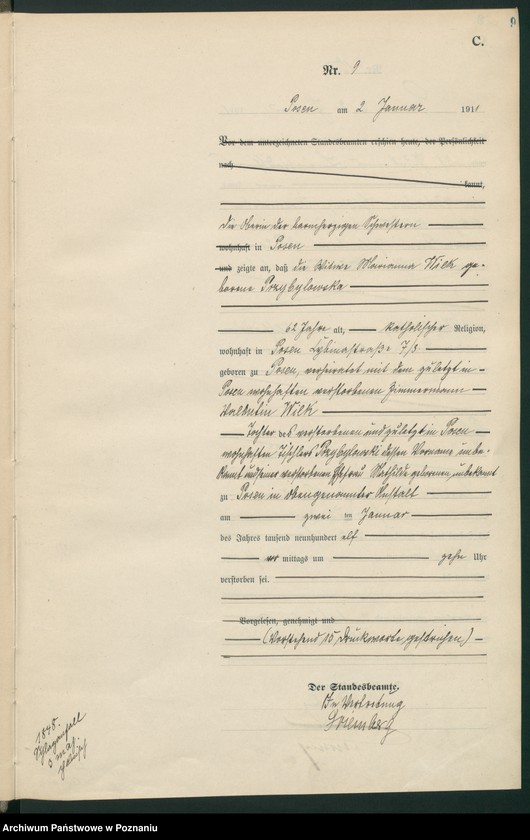 9
C.
Nr. 9
Posen am 2 Januar 1911
Vor dem unterzeichneten Standesbeamten erschien heute, der Persönlichkeit
nach
kannt,
die Oberin der barmherzigen Schwestern
wohnhaft in Posen
und zeigte an, daß die Witwe Marianna Wilk ge-
borene Przybylowska
62 Jahre alt, katholischer Religion,
wohnhaft in Posen 7/8
geboren zu Posen, verheiratet mit dem zuletzt in
Posen wohnhaften verstorbenen Zimmermann
Valentin Wilk
Tochter des verstorbenen und zuletzt in Posen
wohnhaften Tischlers Przybylowski dessen Vorname unbe-
kannt und seiner verstorbenen Ehefrau Mathilde geborenen, unbekannt
zu Posen in obengenannter Anstalt
am zwei ten Januar
des Jahres tausend neunhundert elf
vor mittags um zehn Uhr
verstorben sei.
Vorgelesen, genehmigt und
(Vorstehend 15 Druckworte gestrichen)
Der Standesbeamte.
In Vertretung
1848.
3
Archiwum Państwowe w Poznaniu